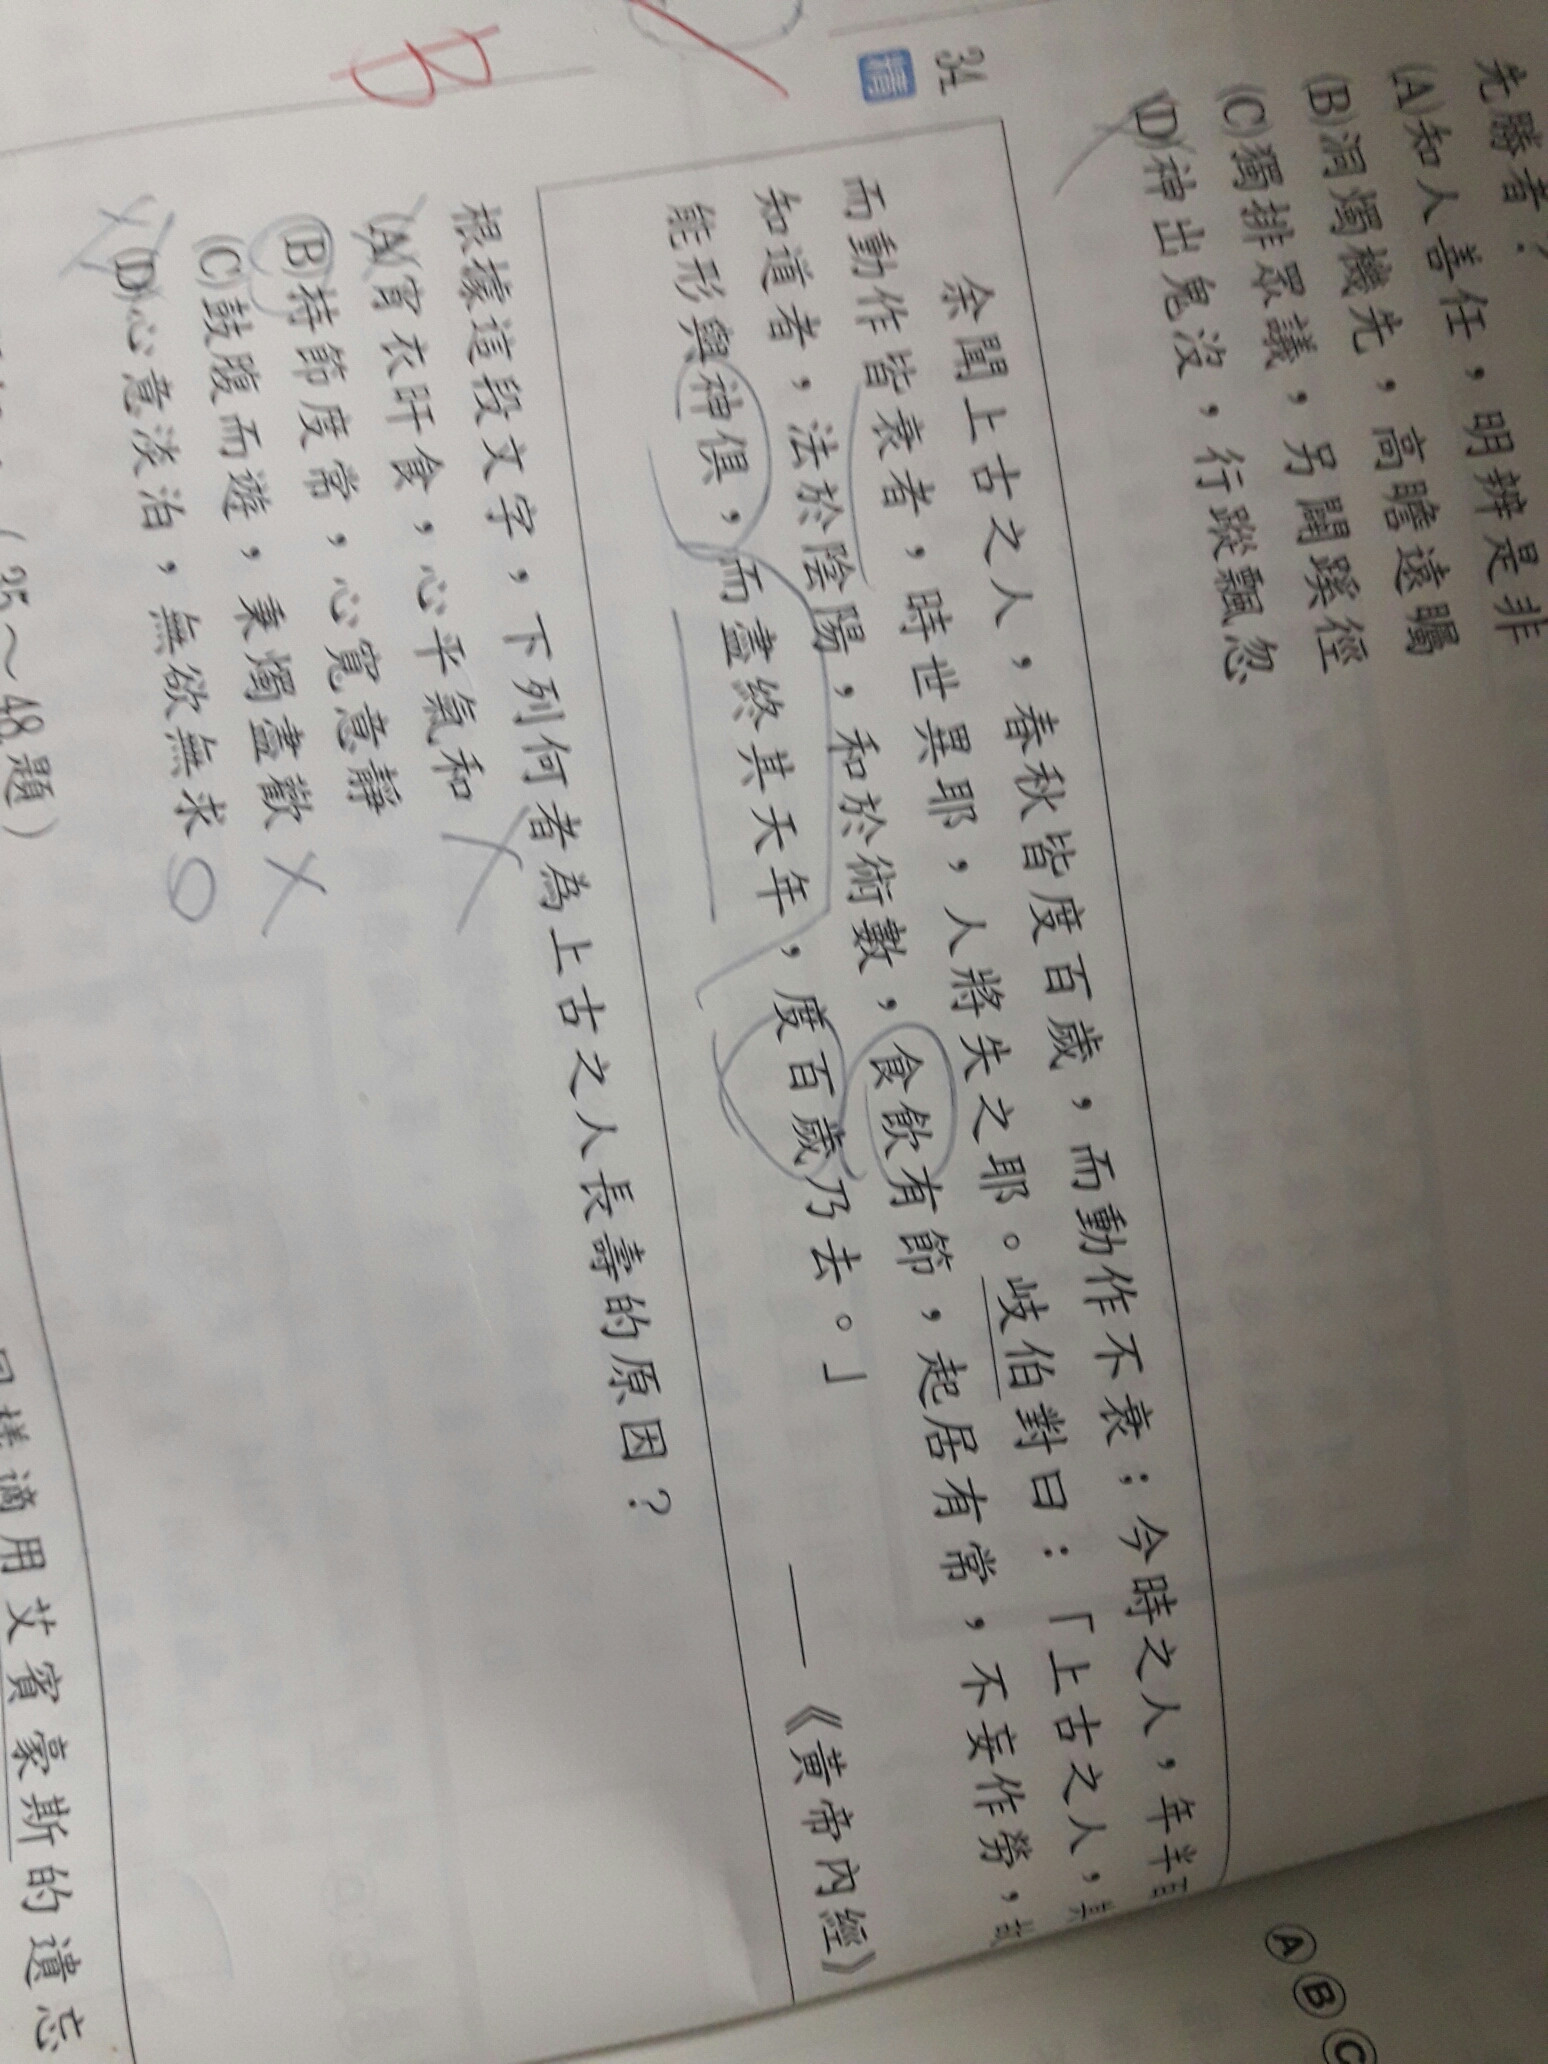 先勝者？
(A)知人善任，明辨是非
(B)洞燭機先，高瞻遠矚
(C)獨排眾議，另闢蹊徑
(D)神出鬼沒，行蹤飄忽
34
精
余聞上古之人，春秋皆度百歲，而動作不衰；今時之人，年半百
而動作皆衰者，時世異耶，人將失之耶。岐伯對曰：「上古之人，其
知道者，法於陰陽，和於術數，食飲有節，起居有常，不妄作勞，故
能形與神俱，而盡終其天年，度百歲乃去。」
——《黃帝內經》
根據這段文字，下列何者為上古之人長壽的原因？
(A)宵衣旰食，心平氣和
(B)持節度常，心寬意靜
(C)鼓腹而遊，秉燭盡歡
(D)心意淡泊，無欲無求
B
(35～48題)
用艾賓豪斯的遺忘
Ⓐ Ⓑ Ⓒ